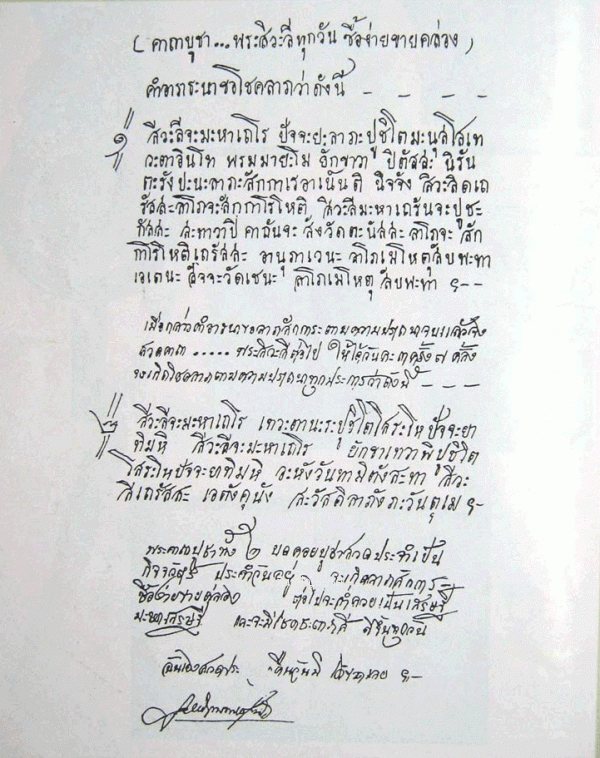 ( คาถาบูชา...พระสิวะลีทุกวัน ซื้อง่ายขายคล่อง )
คำอาราธนาขอโชคลาภว่าดังนี้ - - - -
๑ สีวะลีจะมะหาเถโร ปัจจะยะลาภะปูชิโตมะนุสโสเท
วะตาอินโท พรมมายะโม อักขาวา ปิตัสสะ นิรัน
ตะรังปะนะลาภะสักกาเรอาเน็นติ นิจจัง สีวะลิดเถ
รัสสะลาโภจะสักกาโรโหติ สีวะลีมะหาเถรันจะปูชะ
กัสสะ สะทาวาปี คาฉันจะ สังวัดตะนัสสะ ลาโภจะ สัก
กาโรโหติเถรัสสะ อานุภาเวนะ ลาโภเมโหตุสัมพะทา
เอเตนะ สัจจะวัดเชนะ ลาโภเมโหตุ สัมพะทา ฯ-
เมื่อกล่าวคำอาราธนาขอลาภสักการะตามความปรารถนาจบแล้วจึง
สวดคาถา ..... พระสิวะลีต่อไป ให้ได้วันละ ๓ ครั้ง ๗ ครั้ง
จะเกิดโชคลาภตามความปรารถนาทุกประการว่าดังนี้ - - - -
๒ สีวะลีจะมะหาเถโร เทวะตานะระปูชิโตโสระโหปัจจะยา
ทิมหิ สีวะลีจะมะหาเถโร ยักขาเทวาพิปูชิโต
โสระโหปัจจะยาทิมหิ อะหังวันทามิตังสะทา สีวะ
ลีเถรัสสะ เอตังคุนัง สะวัสดิลาภังภะวันตุเม ฯ-
พระคาถาบูชาทั้ง ๒ บท
กิจวัตร ประจำวันอยู่ จะเกิดลาภสักการะ
ซื้อง่ายขายคล่อง ต่อไปจะร่ำรวยเป็นเศรษฐี
มหาเศรษฐี และจะมีโชคชะตาดี ทุกวัน